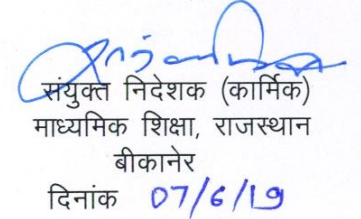 संयुक्त निदेशक (कार्मिक)
माध्यमिक शिक्षा, राजस्थान
बीकानेर
दिनांक 07/6/19